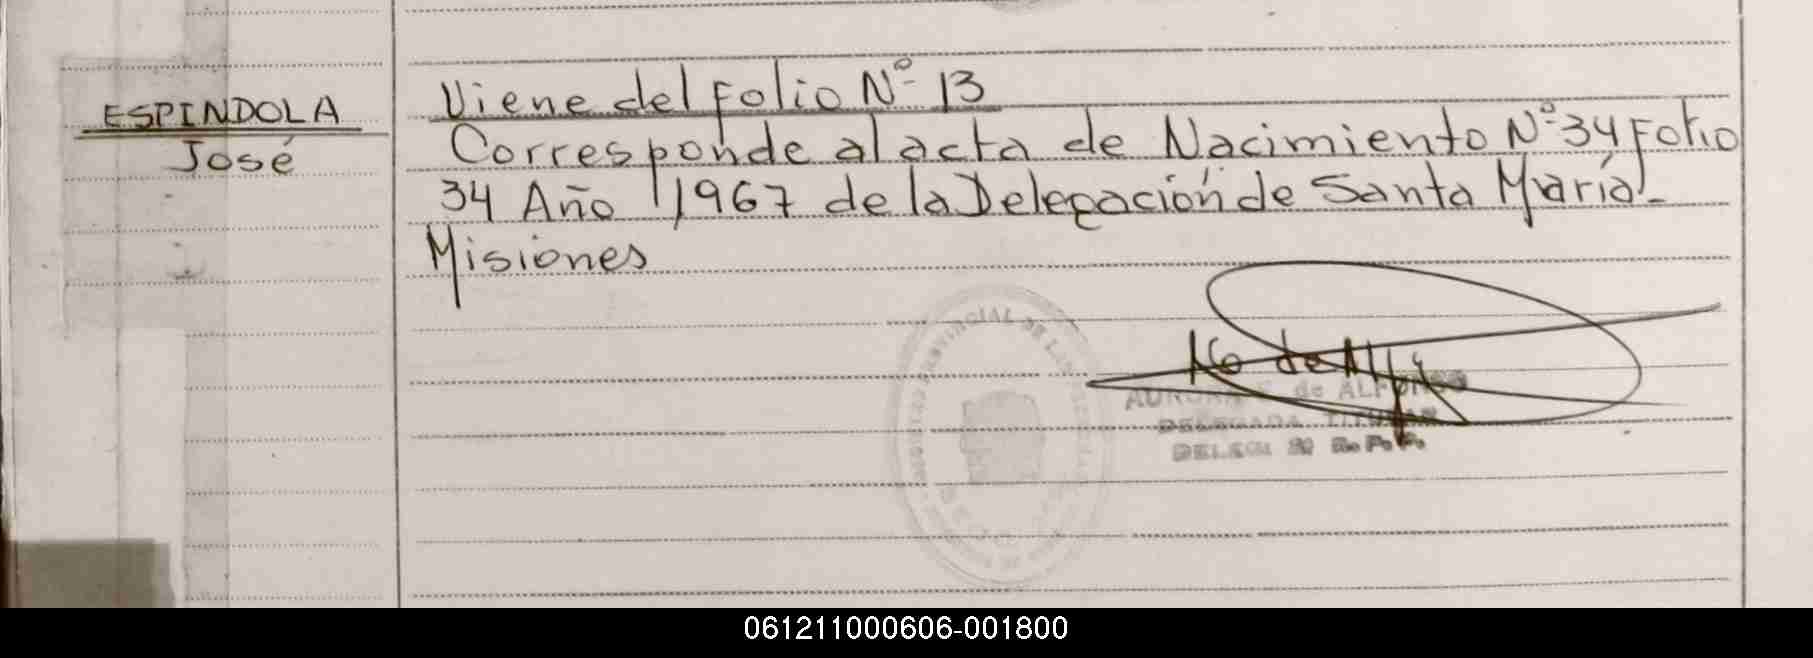 ESPINDOLA
José
Viene del Folio Nº 13
Corresponde al acta de Nacimiento Nº 34 Folio
34 Año 1967 de la Delegación de Santa María-
Misiones
de ALFONSO
DELEGADA TITULAR
R. P. P.
061211000606-001800